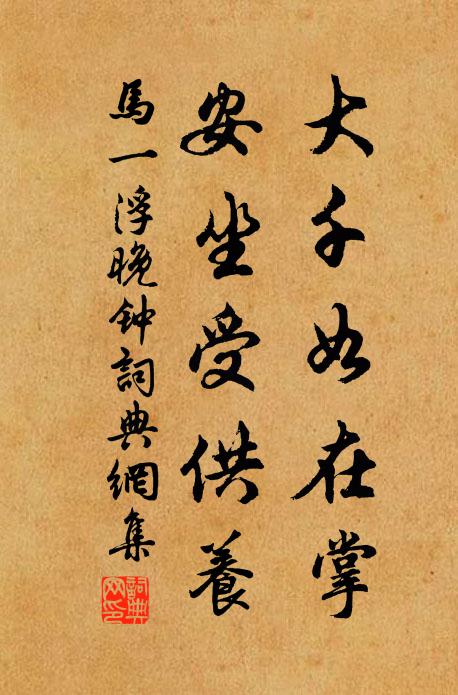 大千如在掌
安坐受供養
馬一浮晚钟詞典網集
詞典网印